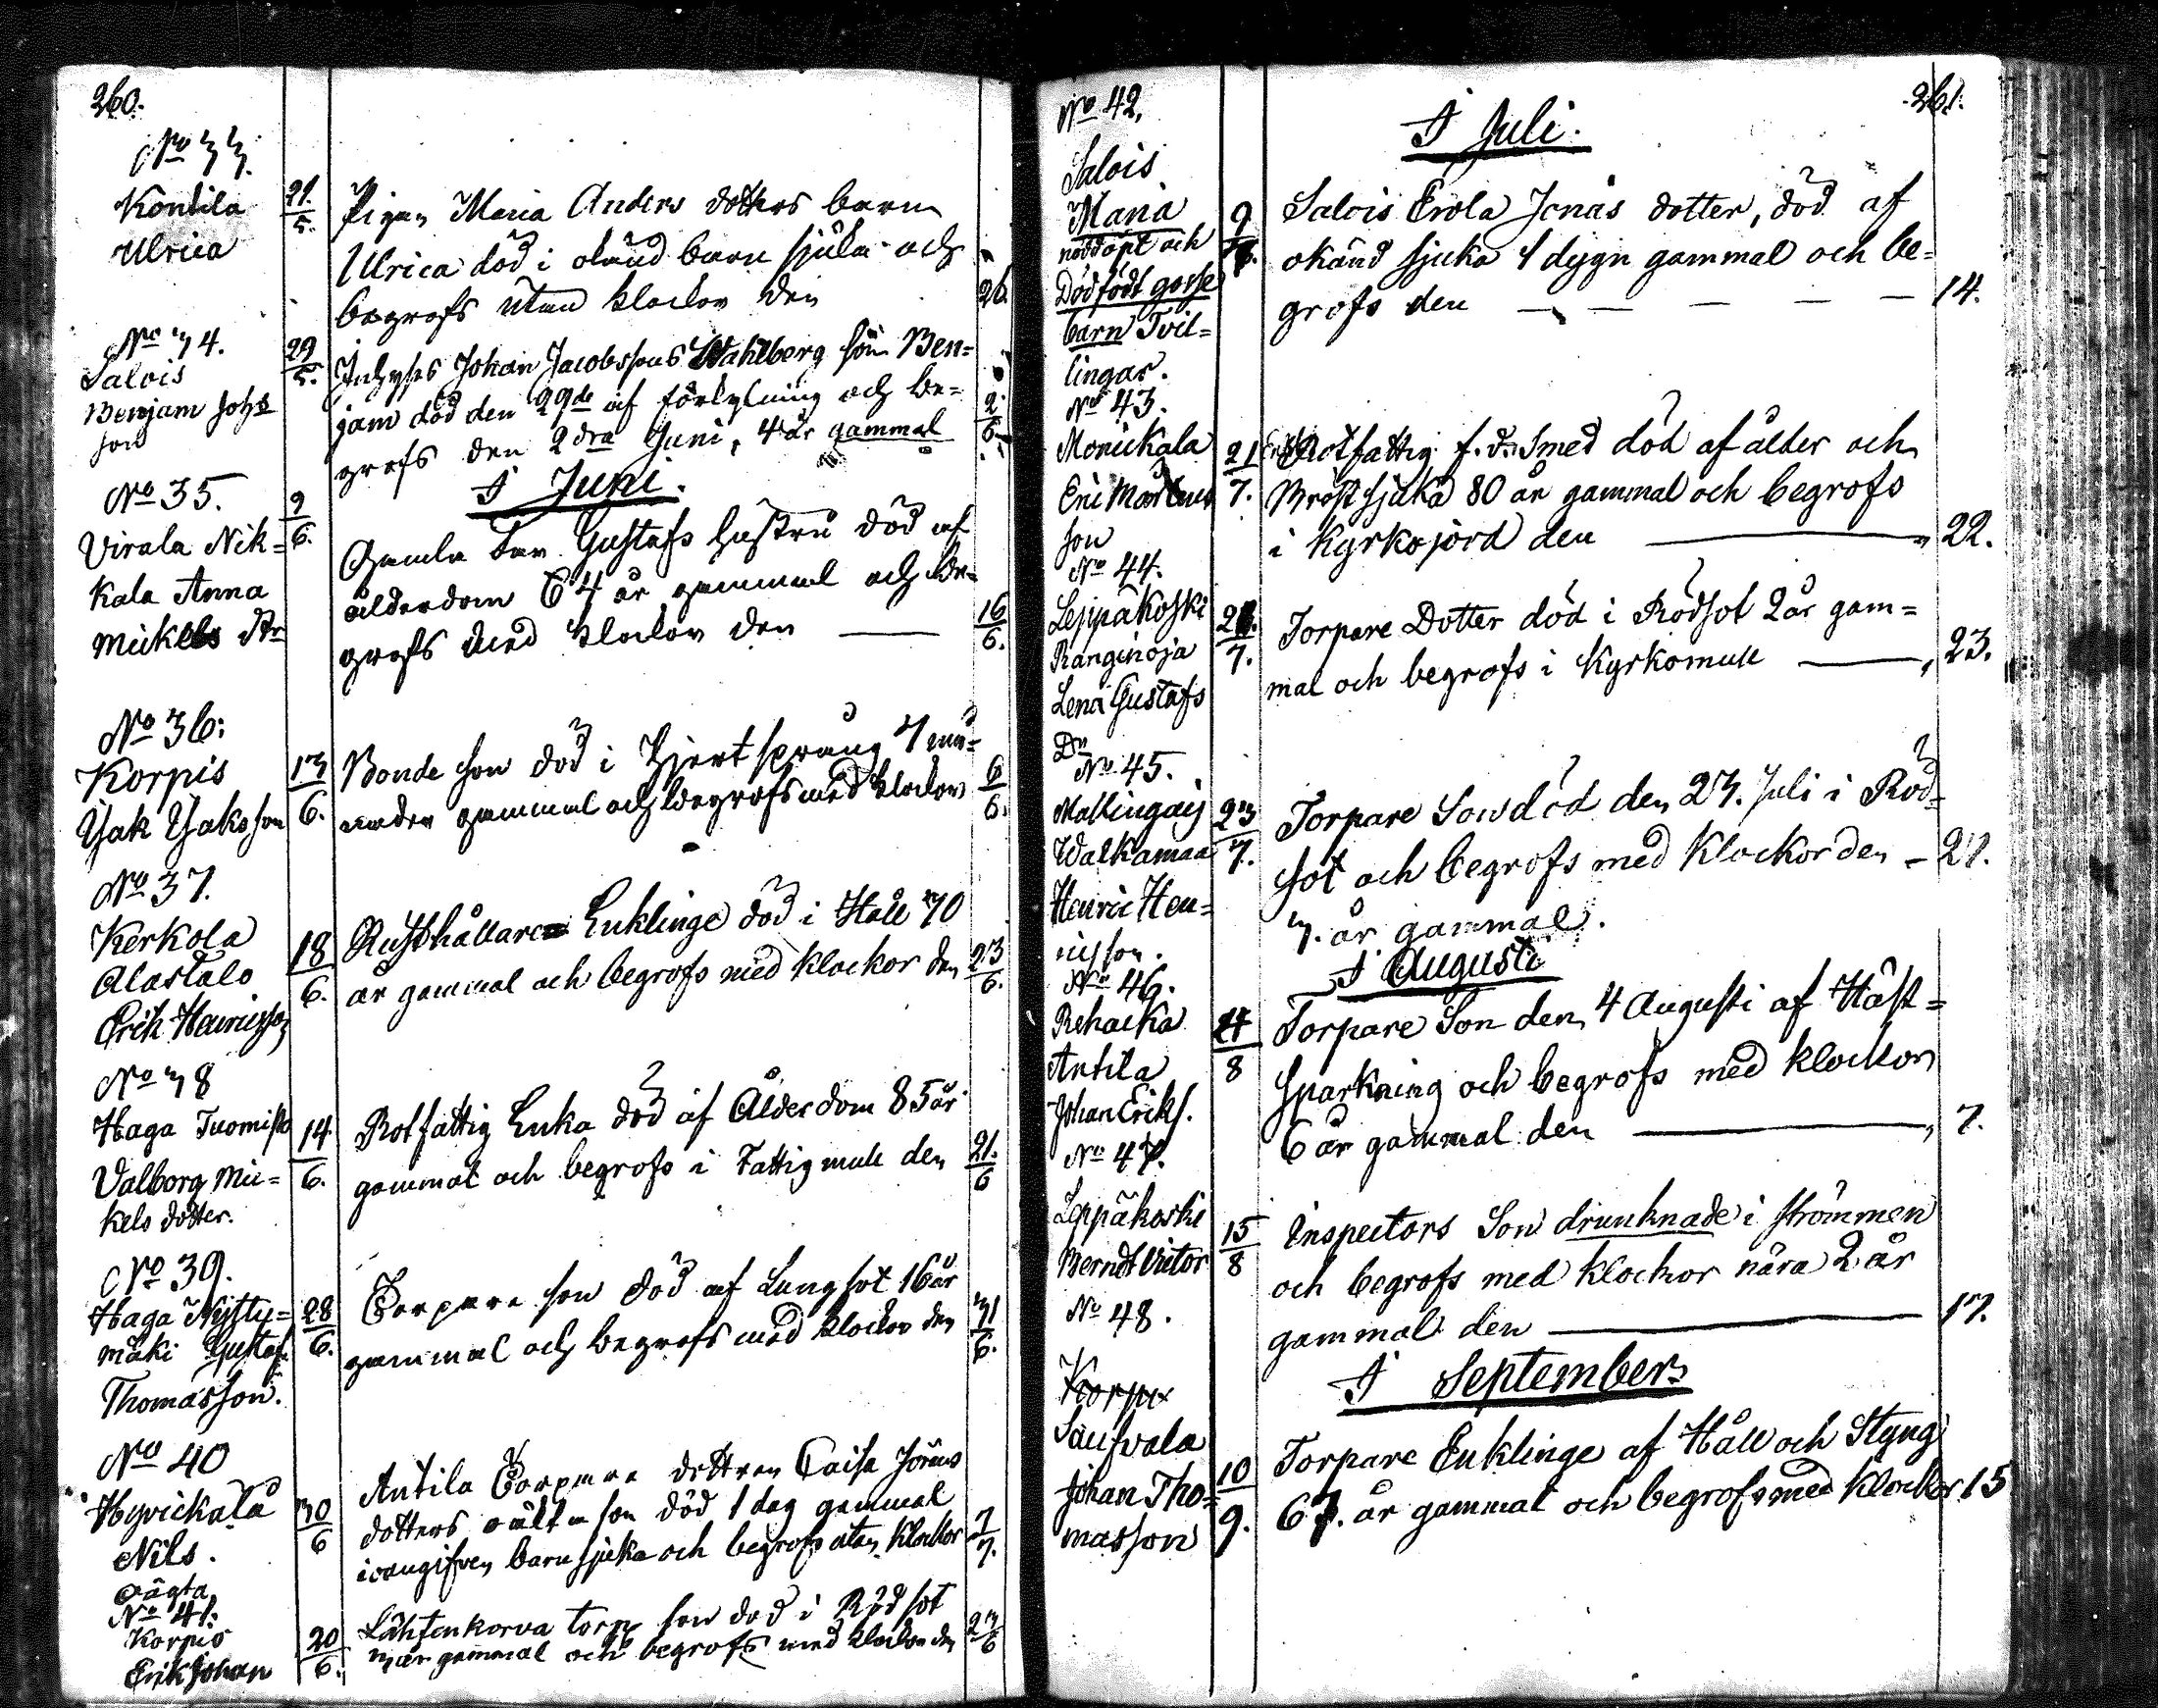 260.
No 33.
Kontila
Ulrica
21.
5.
Pigan Maria Anders dotters barn
Ulrica död i okänd barn sjuka och
begrofs utan klockor den
26.
No 34.
Salois
Benjam Johs
son
29
5.
Inhyses Johan Jacobssons Wahlberg son Ben=
jam död den 29de af förkylning och be=
grofs den 2dra Juni, 4 år gammal
2.
6.
I Juni.
No 35.
Virala Nik=
kala Anna
Mickels Dr
9
6.
Gamla Gustafs hustru död af
ålderdom 64 år gammal och be=
grofs med klockor den
16
6.
No 36:
Korpis
Isak Isaksson
13
6.
Bonde son död i Hjertsprång 7 må=
nader gammal och begrofs med klockor
6
6.
No 37.
Kerkola
Alastalo
Erik Henricsson
18
6.
Rusthållare Enklinge död i Håll 70
år gammal och begrofs med klockor den
23
6.
No 38
Haga Tuomisto
Valborg Mic=
kels dotter.
14.
6.
Rotfattig Enka död af Ålderdom 85 år
gammal och begrofs i Fattigmull den
21.
6
No 39.
Haga Nysty=
mäki Gustaf
Thomasson.
28
6.
Torpare son död af Lungsot 16 år
gammal och begrofs med klockor den
31
6.
No 40
Hyrickälä
Nils.
oägta
30
6
Antila Torpare dottren Caisa Jöräns
dotters oälta son död 1 dag gammal
i oangifven barnsjuka och begrofs utan klockor
7
7.
No 41.
Korpis
Erik Johan
20
6.
Lähtenkorva torp son död i Rödsot
3 år gammal och begrofs med klockor den
23
6
261.
I Juli.
No 42.
Salois
Maria
nöddöpt och
Dödfödt gosse
barn Tvil=
lingar.
9
7.
Salois Erola Jonas dotter, död af
okänd sjuka 1 dygn gammal och be=
grofs den
14.
No 43.
Monickala
Eric Mårtens
son
21
7.
Rotfattig f. d. Smed död af ålder och
Bröstsjuka 80 år gammal och begrofs
i Kyrkojord den
22.
No 44.
Leppäkoski
Ranginoja
Lena Gustafs
Dr
7.
Torpare Dotter död i Rödsot 2 år gam=
mal och begrofs i Kyrkomull
23.
No 45.
Mallingais
Walkamaa
Henric Hen=
ricsson.
23
7.
Torpare Son död den 23. Juli i Röd=
sot och begrofs med Klockor den
27.
3. år gammal.
I Augusti
No 46.
Rehacka
Antila
Johan Eriks.
4
8
Torpare Son den 4 Augusti af Häst=
sparkning och begrofs med klockor
6 år gammal den
7.
No 47.
Leppäkoski
Berndt Victor
15
8
Inspectors Son drunknade i strömmen
och begrofs med Klockor nära 2 år
gammal den
17.
I September
No 48.
Korpis
Saufvala
Johan Tho=
masson
10
9.
Torpare Enklinge af Håll och Styng
67. år gammal och begrofs med klockor 15